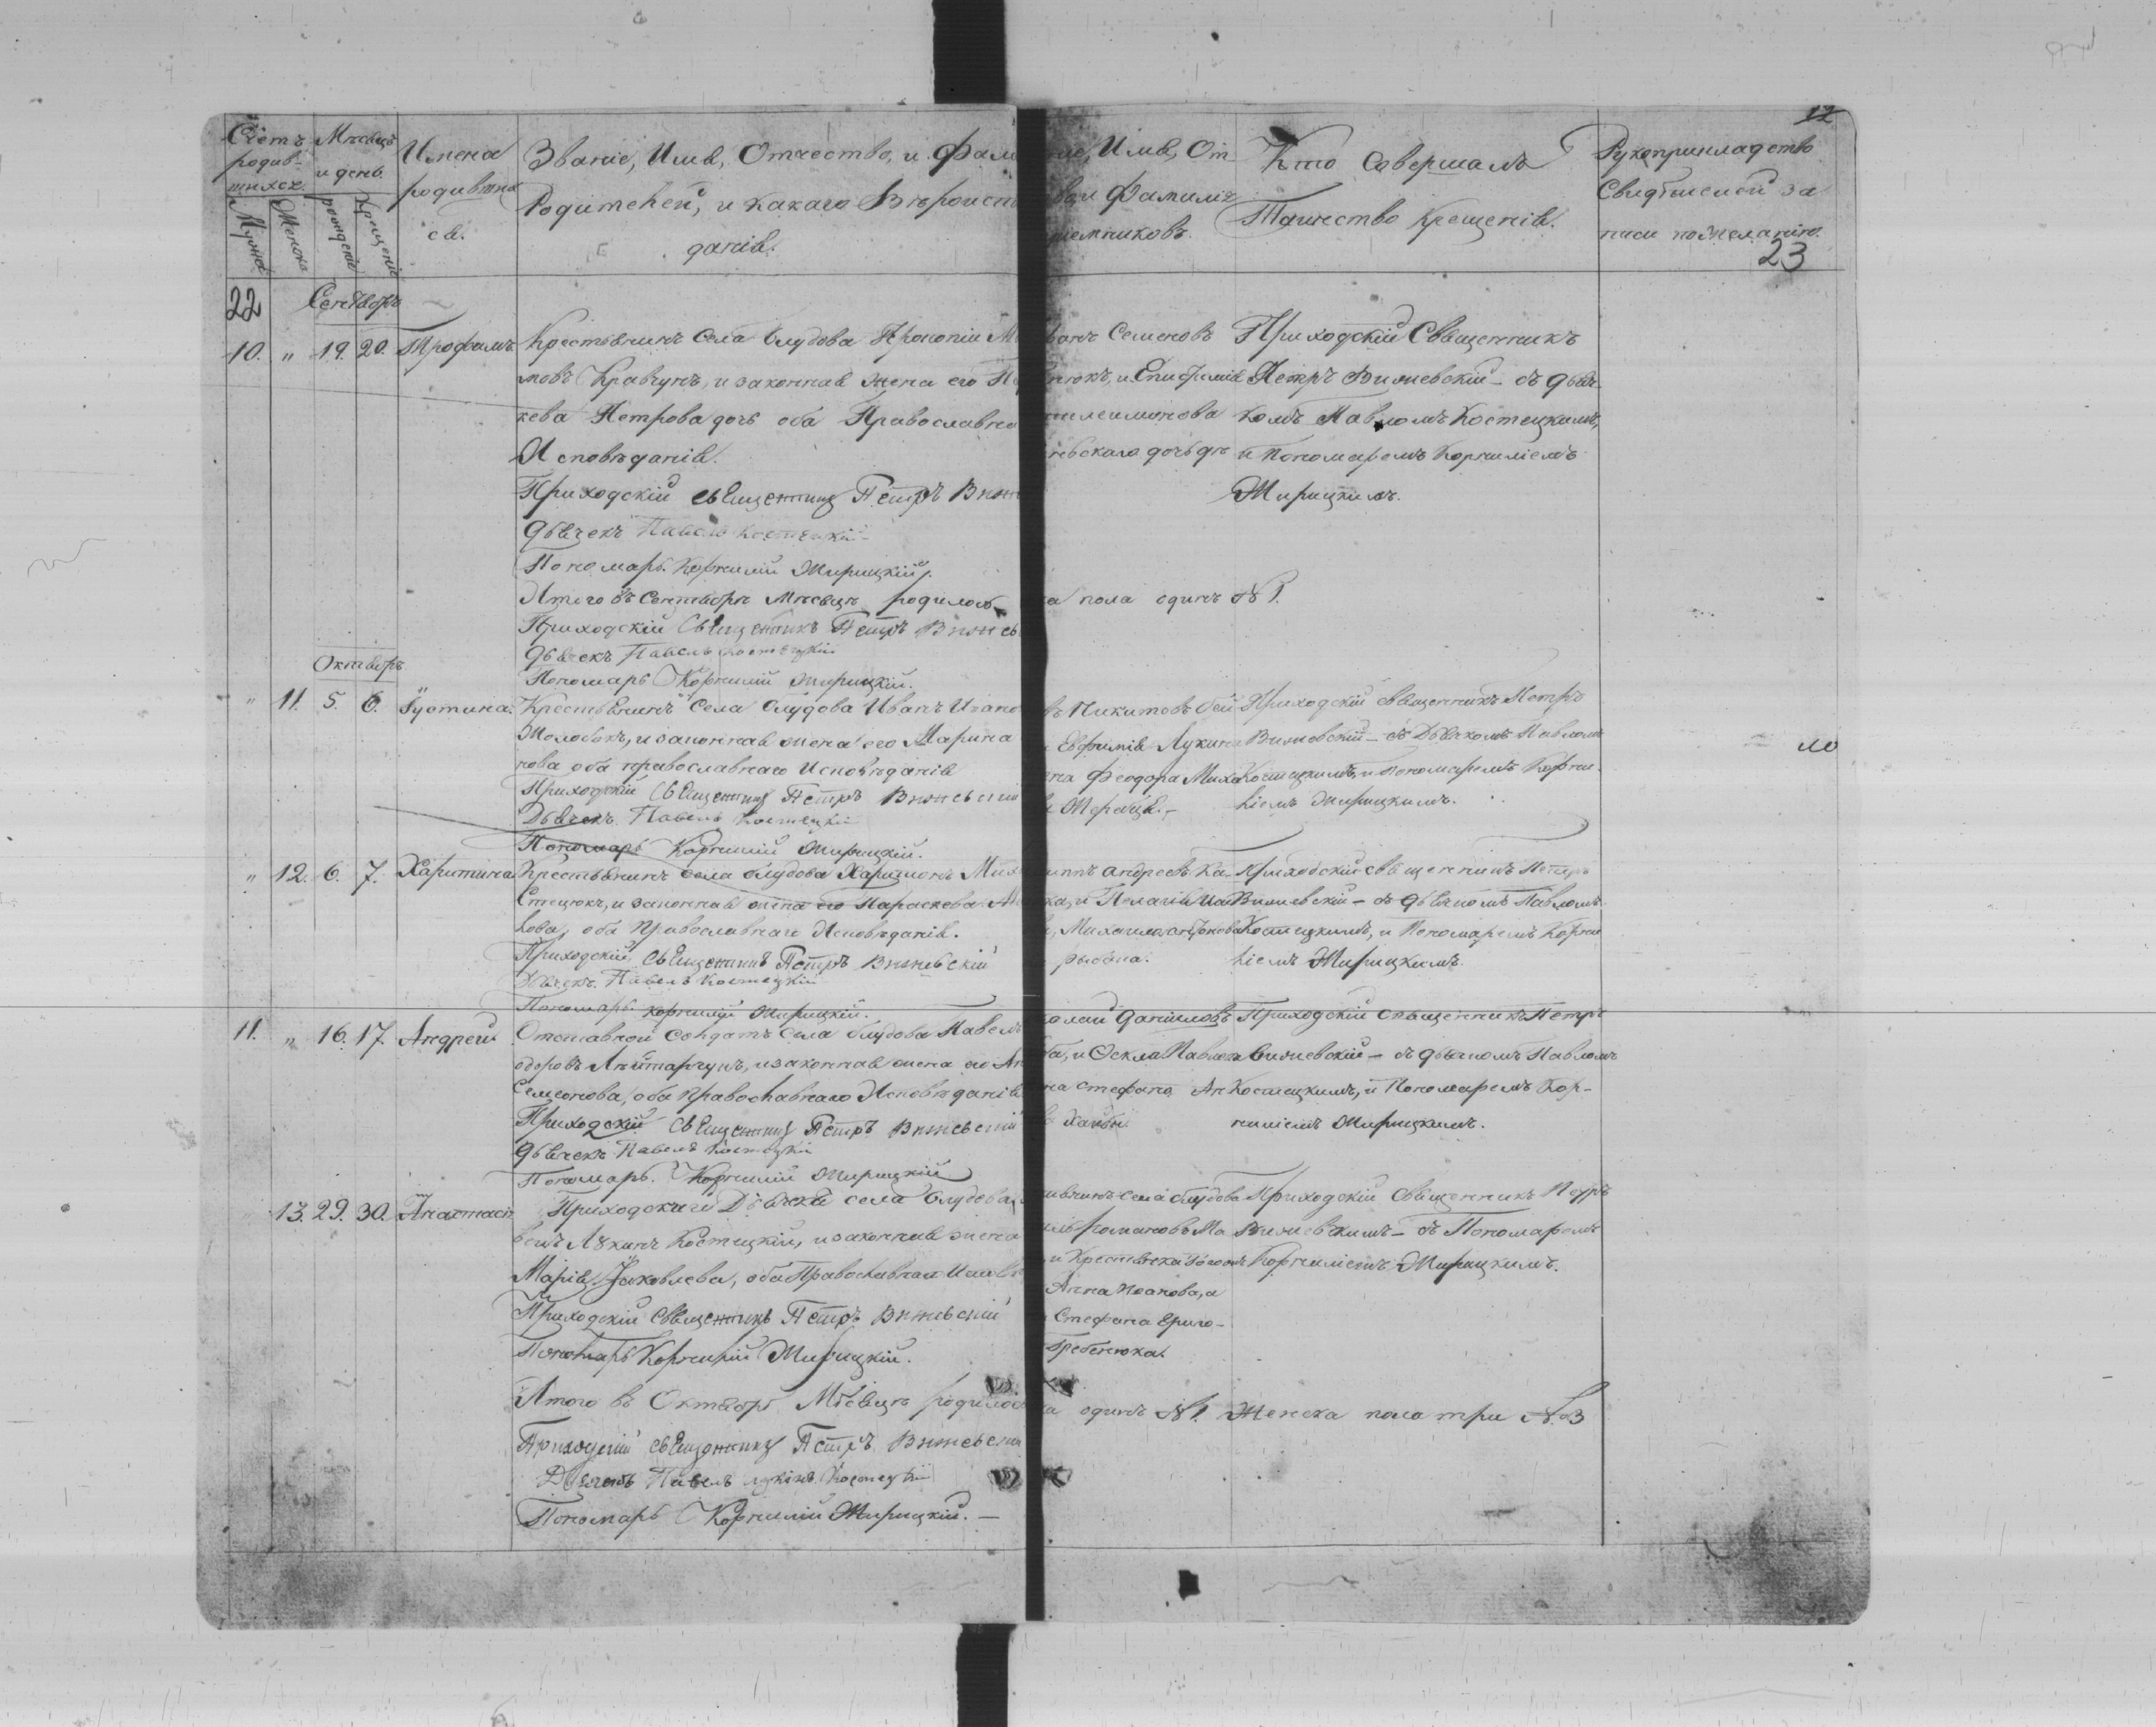 12
Счетъ родив-шихся.
Мѣсяцъ и день.
Имена родивших ся.
Званіе, Имя, Отчество, и Фами
Родителей, и какаго Вѣроиспо
данія.
Мужска
Женска
рожденія
Крещенія
Имя, От
и Фамилія
ріемниковъ.
Кто Совершалъ
Таинство Крещенія.
Рукоприкладство
Свидѣтелей за
писи по желанію.
23
22
Сентябрь
10. " 19. 20. Трофимъ.
Крестьянинъ Села Блудова Прокопій М
мовъ Кравчукъ, и законная жена его П
кева Петрова дочь оба Православна
Исповѣданія.
Приходскій священникъ Петръ Вижев
Дьячекъ Павелъ Костецкій
Пономарь Корнилій Жирицкій.
Итого въ Сентябрѣ Мѣсяцѣ родилось
Приходскій Священникъ Петръ Вижев
Дьячекъ Павелъ Костецкій
Пономарь Корнилій Жирицкій.
ванъ Семеновъ
нюкъ, и Епифимія
илеимонова
невскаго дочь дѣ
Приходскій Священникъ
Петръ Вижевскій – съ Дьяч
комъ Павломъ Костецкимъ,
и Пономаремъ Корниліемъ
Жирицкимъ.
а пола одинъ №1.
Октябрь
" 11. 5. 6. Іустина.
Крестьянинъ Села Блудова Иванъ Ивано
Жолобокъ, и законная жена его Марина
нова оба православнаго Исповѣданія
Приходскій Священникъ Петръ Вижевскій
Дьячекъ Павелъ Костецкій
Пономарь Корнилій Жирицкій.
въ Никитовъ
Евфимія Лукина
на Феодора Миха
Приходскій священникъ Петръ
Вижевскій – съ Дьячкомъ Павломъ
Костецкимъ, и пономаремъ Корни-
ліемъ Жирицкимъ.
" 12. 6. 7. Харитина
Крестьянинъ села Блудова Харитонъ Мих
Стецюкъ, и законная жена его Параскева М
кова, оба Православнаго Исповѣданія.
Приходскій Священникъ Петръ Вижевскій
Дьячекъ Павелъ Костецкій
Пономарь Корнилій Жирицкій.
иппъ Андреевъ Ка
ка, и Пелагія
Приходскій священникъ Петръ
Вижевскій – съ дьячкомъ Павломъ
Костецкимъ, и Пономаремъ Корни
ліемъ Жирицкимъ.
11. " 16. 17. Андрей
Отставной Солдатъ села Блудова Павелъ
одоровъ, и законная жена его Ан
Семенова, оба Православнаго Исповѣданія
Приходскій Священникъ Петръ Вижевскій
Дьячекъ Павелъ Костецкій
Пономарь Корнилій Жирицкій
колай Даниловъ
на Стефана
Приходскій священникъ Петръ
Вижевскій – съ дьячкомъ Павломъ
Костецкимъ, и Пономаремъ Кор-
ниліемъ Жирицкимъ.
13. 29. 30. Анастасія
Приходскаго Дьячка села Блудова
велъ Лукинъ Костецкій, и законная жена
Марія Яковлева, оба Православнаго Испов
Приходскій Священникъ Петръ Вижевскій
Пономарь Корнилій Жирицкій.
янинъ села Блудова
Романовъ
Анна Иванова, а
Стефана
Гребенюка.
Приходскій Священникъ Петръ
Вижевскимъ – съ Пономаремъ
Корниліемъ Жирицкимъ.
Итого въ Октябрѣ Мѣсяцѣ родилос
а одинъ №1. Женска пола три №3
Приходскій священникъ Петръ Вижевскій
Дьячекъ Павелъ Лукинъ Костецкій
Пономарь Корнилій Жирицкій. –